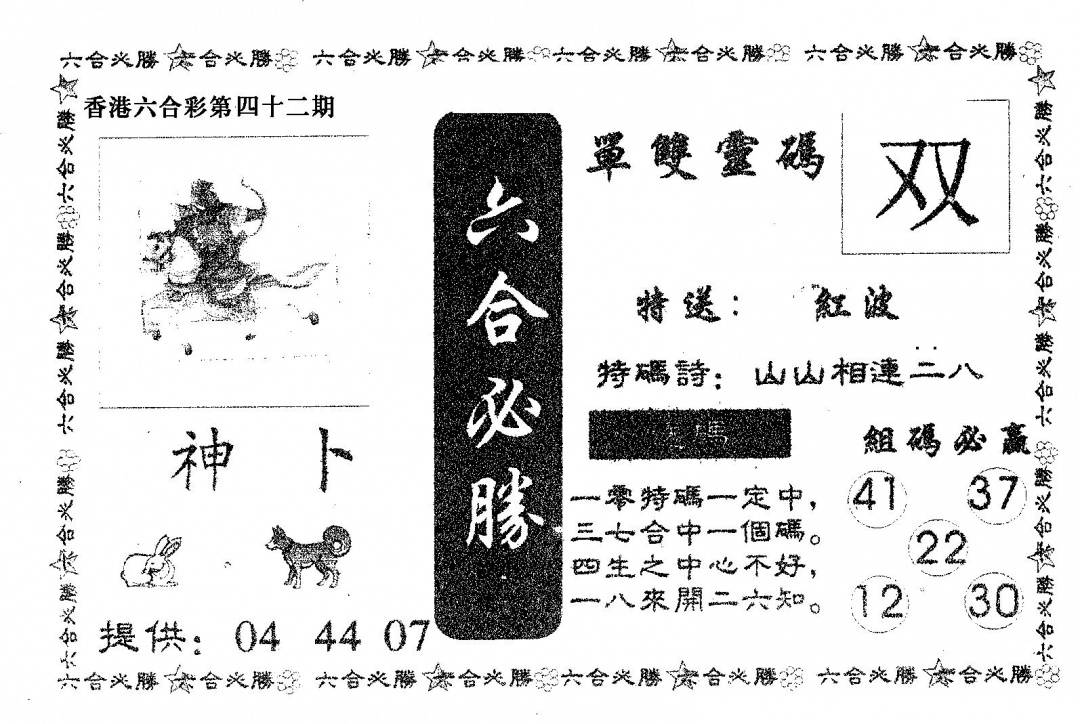 六合必勝 六合必勝 六合必勝 六合必勝 六合必勝 六合必勝 六合必勝 六合必勝
香港六合彩第四十二期
神卜
提供：04 44 07
六合必勝
單雙靈碼
双
特送：紅波
特碼詩：山山相連二八
碼
一零特碼一定中，
三七合中一個碼。
四生之中心不好，
一八來開二六知。
組碼必贏
41 37
22
12 30
六合必勝 六合必勝 六合必勝 六合必勝 六合必勝
六合必勝 六合必勝 六合必勝 六合必勝 六合必勝
六合必勝 六合必勝 六合必勝 六合必勝 六合必勝 六合必勝 六合必勝 六合必勝